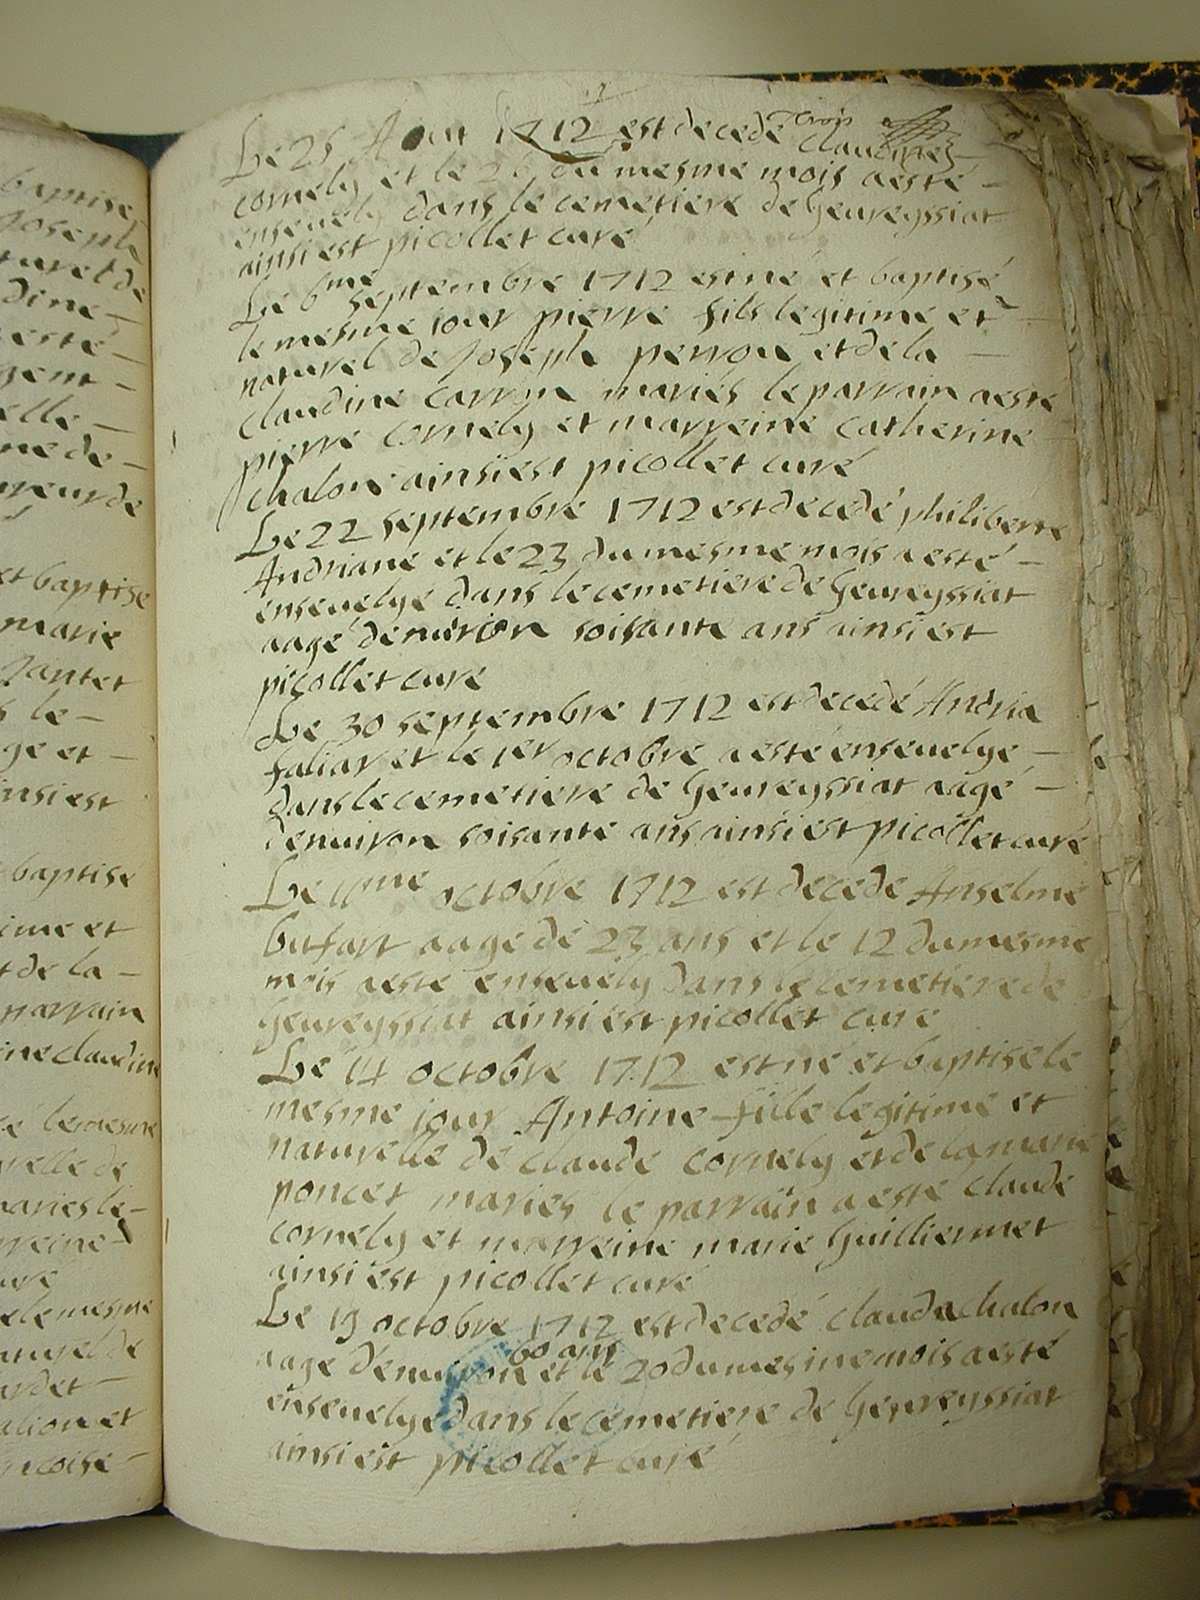 trois
Le 25 Aout 1712 est decedé Claudine
cornely et le 26 du mesme mois aesté
ensevely dans le cemetiere de Gevreyssiat
ainsi est picollet curé
Le 6me septembre 1712 est né et baptisé
le mesme iour pierre fils legitime et
naturel de Joseph perron et de la
claudine carron mariés le parrain aesté
pierre cornely et marreine catherine
chalon ainsi est picollet curé
Le 22 septembre 1712 est decedé philiberte
Andriane et le 23 du mesme mois aesté
ensevelye dans le cemetiere de Gevreyssiat
aagé denviron soisante ans ainsi est
picollet curé
Le 30 septembre 1712 est decedé Andria
faliar et le 1er octobre aesté ensevelye
dans le cemetiere de Gevreyssiat aagé
denviron soisante ans ainsi est picollet curé
Le 11me octobre 1712 est decede Anselme
buffart aage de 23 ans et le 12 du mesme
mois aesté ensevely dans le cemetiere de
Gevreyssiat ainsi est picollet curé
Le 14 octobre 1712 est né et baptise le
mesme iour Antoine fille legitime et
naturelle de claude cornely et de la marie
poncet mariés le parrain aesté claude
cornely et marreine marie Guilliermet
ainsi est picollet curé
Le 19 octobre 1712 est decedé clauda chalon
60 ans
aage denviron et le 20 du mesme mois aesté
ensevelye dans le cemetiere de Gevreyssiat
ainsi est picollet curé